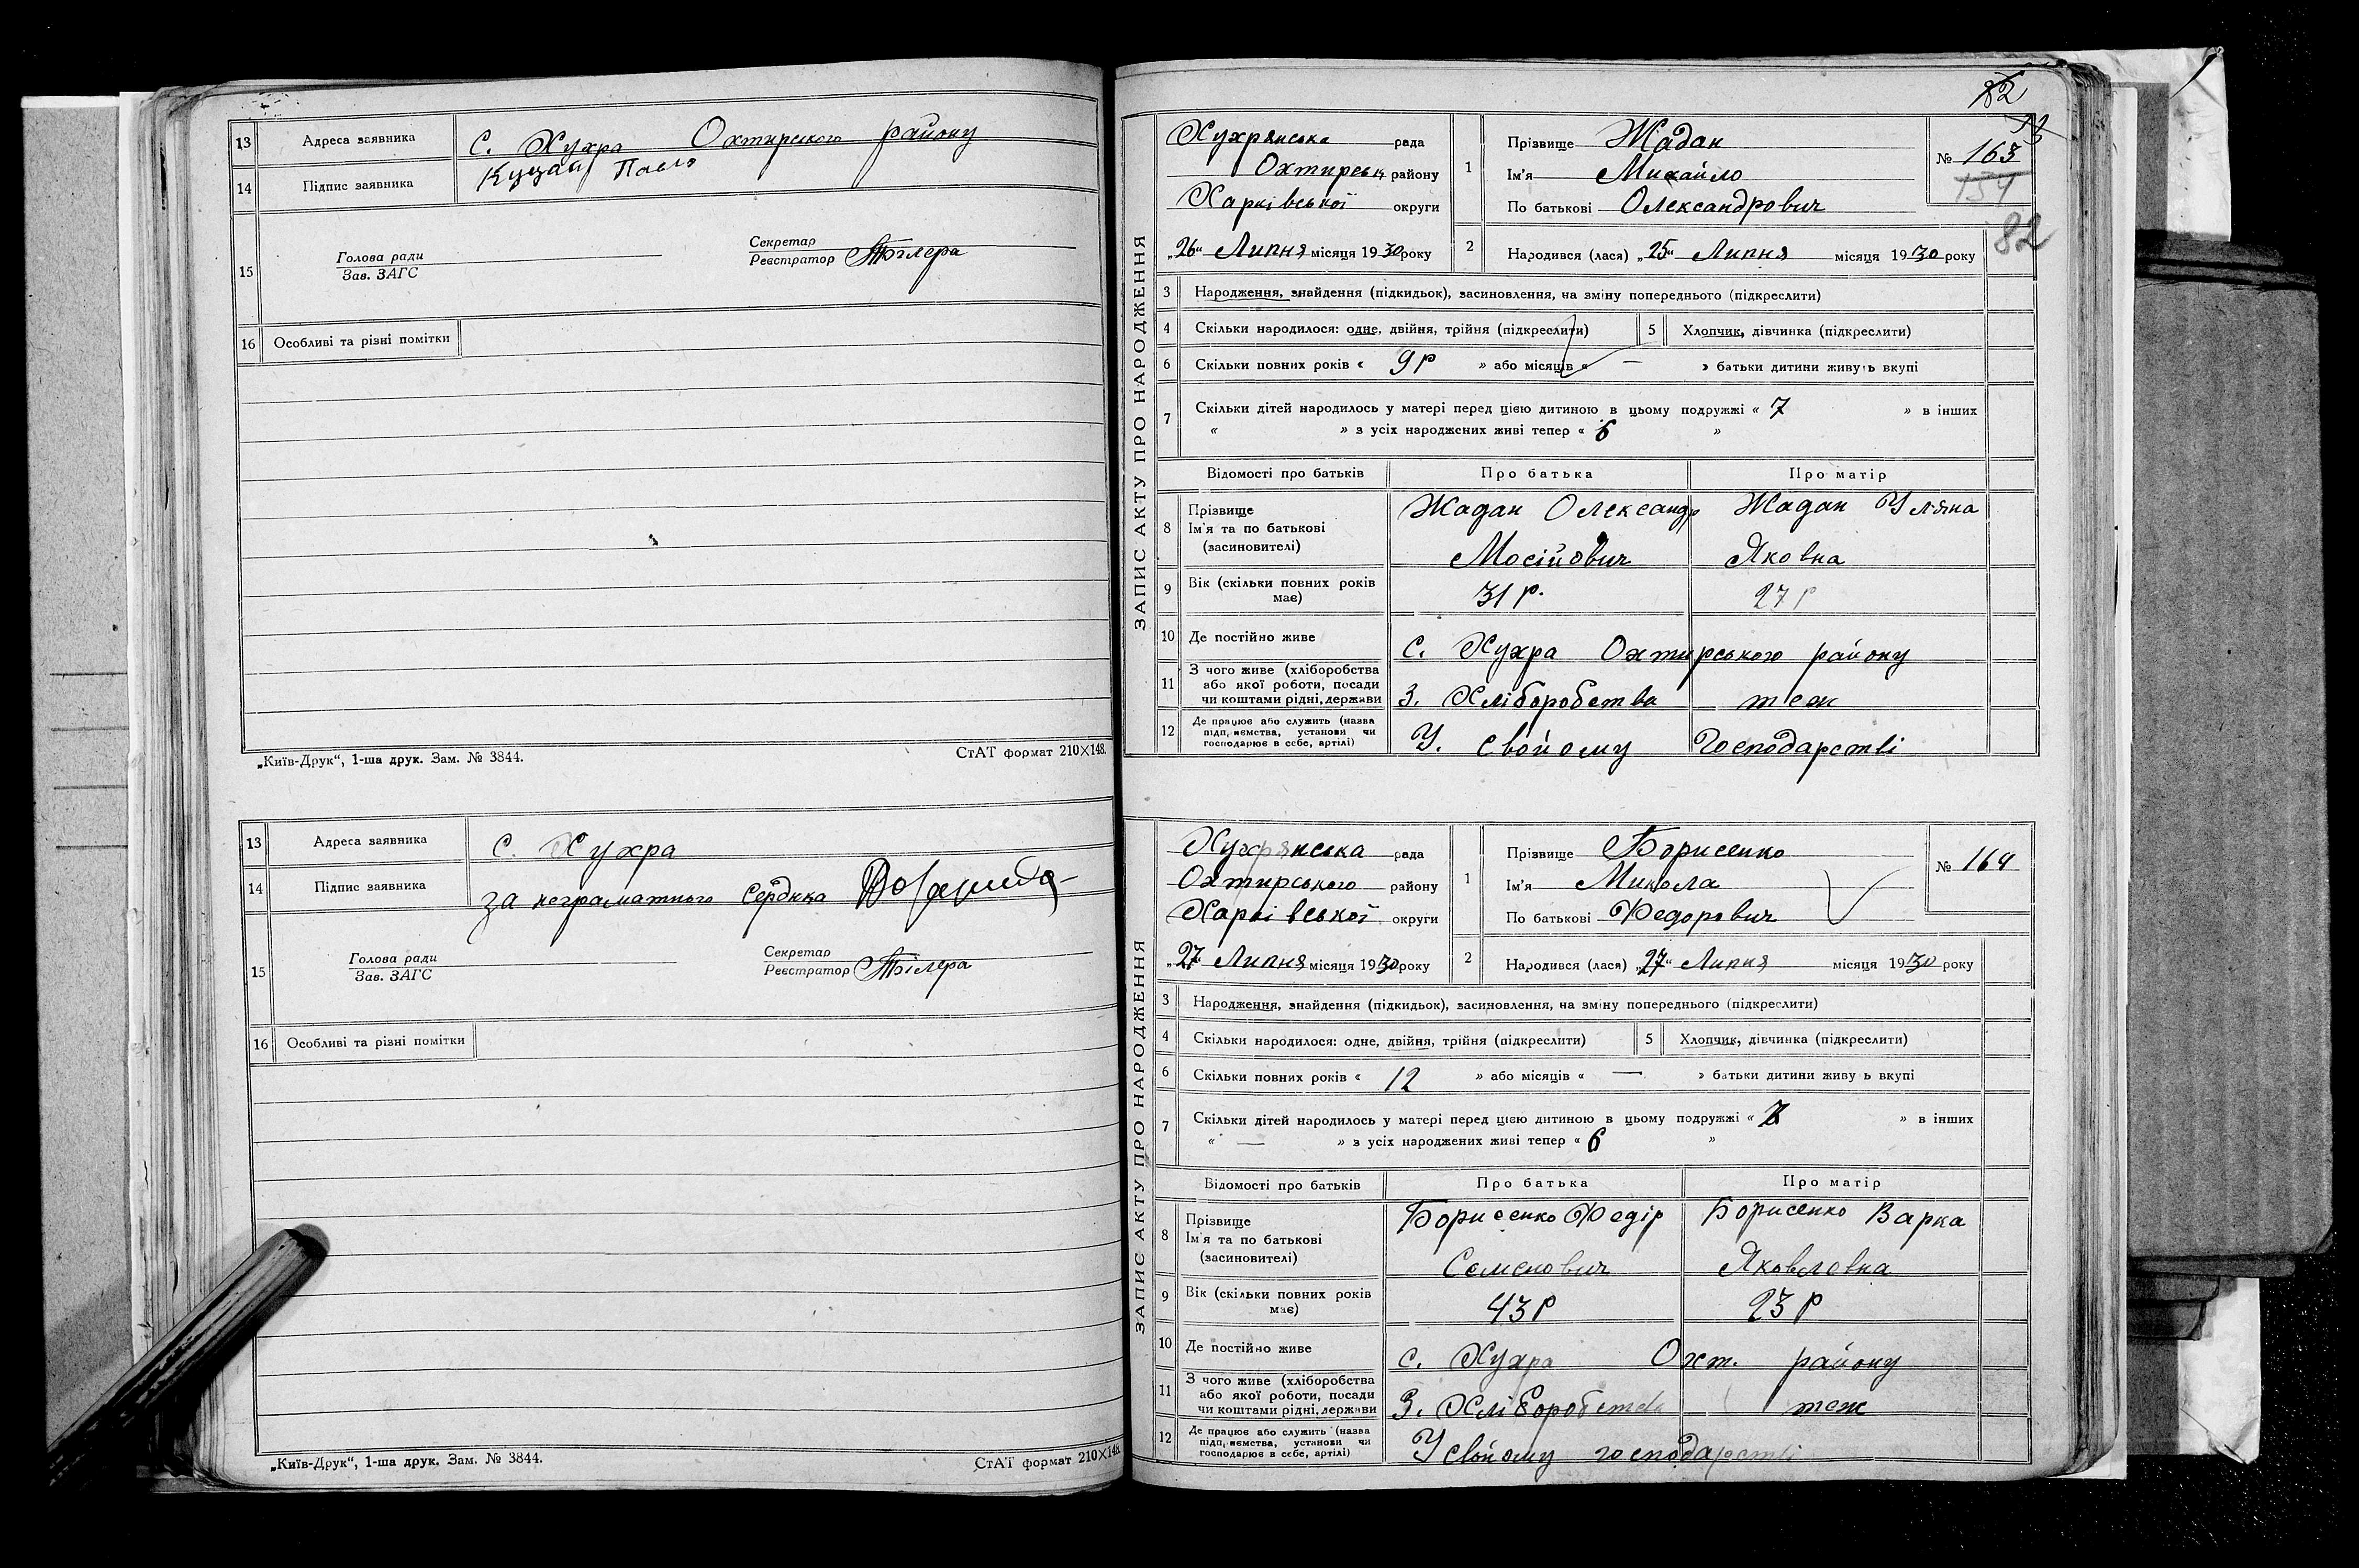 13 Адреса заявника С. Хухра Охтирского району
14 Підпис заявника Куцай
15 Голова ради
Зав. ЗАГС
Секретар
Реєстратор
16 Особливі та різні помітки
„Київ-Друк“, 1-ша друк. Зам. № 3844. СтАТ формат 210×148.
13 Адреса заявника С. Хухра
14 Підпис заявника за неграматного
15 Голова ради
Зав. ЗАГС
Секретар
Реєстратор
16 Особливі та різні помітки
„Київ-Друк“, 1-ша друк. Зам. № 3844. СтАТ формат 210×148.
82
ЗАПИС АКТУ ПРО НАРОДЖЕННЯ
Хухрянська рада
Охтирськ району
Харківської округи
„26“ Липня місяця 1930 року
1 Прізвище Жадан
Ім'я Михайло
По батькові Олександрович
№ 163
154
82
2 Народився (лася) „25“ Липня місяця 1930 року
3 Народження, знайдення (підкидьок), засиновлення, на зміну попереднього (підкреслити)
4 Скільки народилося: одне, двійня, трійня (підкреслити) 5 Хлопчик, дівчинка (підкреслити)
6 Скільки повних років « 9 р » або місяців « — » батьки дитини живуть вкупі
7 Скільки дітей народилось у матері перед цією дитиною в цьому подружжі « 7 » в інших
« » з усіх народжених живі тепер « 6 »
Відомості про батьків Про батька Про матір
8 Прізвище
Ім'я та по батькові
(засиновителі)
Жадан Олександр
Мосійович
Жадан Уляна
Яковна
9 Вік (скільки повних років має) 31 р. 27 р
10 Де постійно живе С. Хухра Охтирського району
11 З чого живе (хліборобства
або якої роботи, посади
чи коштами рідні, держави
З. Хліборобства теж
12 Де працює або служить (назва
підприємства, установи чи
господарює в себе, артілі)
У. свойому Господарстві
ЗАПИС АКТУ ПРО НАРОДЖЕННЯ
Хухрянська рада
Охтирського району
Харківської округи
„27“ Липня місяця 1930 року
1 Прізвище Борисенко
Ім'я Микола
По батькові Федорович
№ 164
2 Народився (лася) „27“ Липня місяця 1930 року
3 Народження, знайдення (підкидьок), засиновлення, на зміну попереднього (підкреслити)
4 Скільки народилося: одне, двійня, трійня (підкреслити) 5 Хлопчик, дівчинка (підкреслити)
6 Скільки повних років « 12 » або місяців « — » батьки дитини живуть вкупі
7 Скільки дітей народилось у матері перед цією дитиною в цьому подружжі « » в інших
« — » з усіх народжених живі тепер « 6 »
Відомості про батьків Про батька Про матір
8 Прізвище
Ім'я та по батькові
(засиновителі)
Борисенко Федір
Семенович
Борисенко Варка
Яковлевна
9 Вік (скільки повних років має) 43 р 23 р
10 Де постійно живе с. Хухра Охт. району
11 З чого живе (хліборобства
або якої роботи, посади
чи коштами рідні, держави
З. Хліборобства теж
12 Де працює або служить (назва
підприємства, установи чи
господарює в себе, артілі)
У свойому господарстві